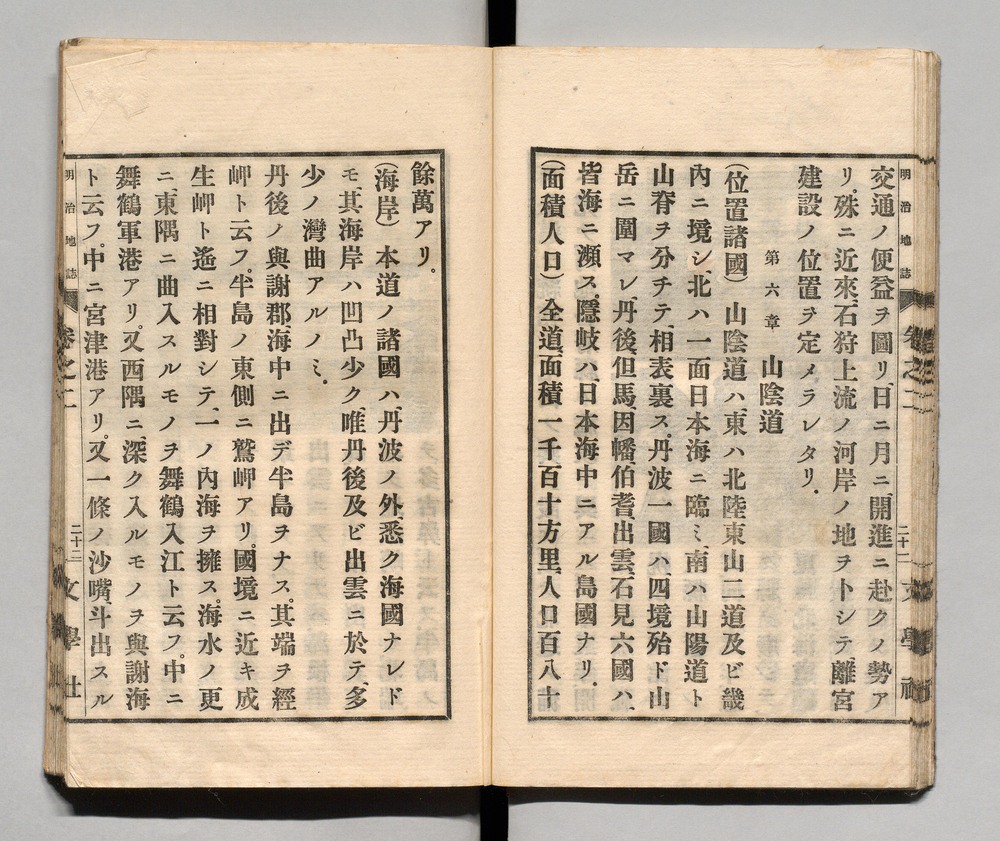 明治地誌
卷之二
二十二
文學社
交通ノ便益ヲ圖リ、日ニ月ニ、開進ニ赴クノ勢ア
リ。殊ニ近來、石狩上流ノ河岸ノ地ヲトシテ離宮
建設ノ位置ヲ定メラレタリ。
第六章 山陰道
(位置諸國) 山陰道ハ、東ハ北陸東山二道及ビ畿
內ニ境シ、北ハ一面日本海ニ臨ミ、南ハ山陽道ト
山脊ヲ分チテ、相表裏ス。丹波一國ハ四境殆ド山
岳ニ圍マレ、丹後、但馬、因幡、伯耆、出雲、石見六國ハ、
皆海ニ瀕ス。隱岐ハ、日本海中ニアル島國ナリ。
(面積人口) 全道、面積一千百十方里、人口百八十
餘萬アリ。
(海岸) 本道ノ諸國ハ、丹波ノ外悉ク海國ナレド
モ、其海岸ハ凹凸少ク、唯丹後及ビ出雲ニ於テ、多
少ノ灣曲アルノミ。
丹後ノ與謝郡、海中ニ出デ半島ヲナス。其端ヲ經
岬ト云フ。半島ノ東側ニ鷲岬アリ。國境ニ近キ成
生岬ト遙ニ相對シテ、一ノ內海ヲ擁ス。海水ノ更
ニ、東隅ニ曲入スルモノヲ舞鶴入江ト云フ。中ニ
舞鶴軍港アリ。又西隅ニ、深ク入ルモノヲ與謝海
ト云フ。中ニ宮津港アリ。又一條ノ沙嘴、斗出スル
明治地誌
卷之二
二十二
文學社